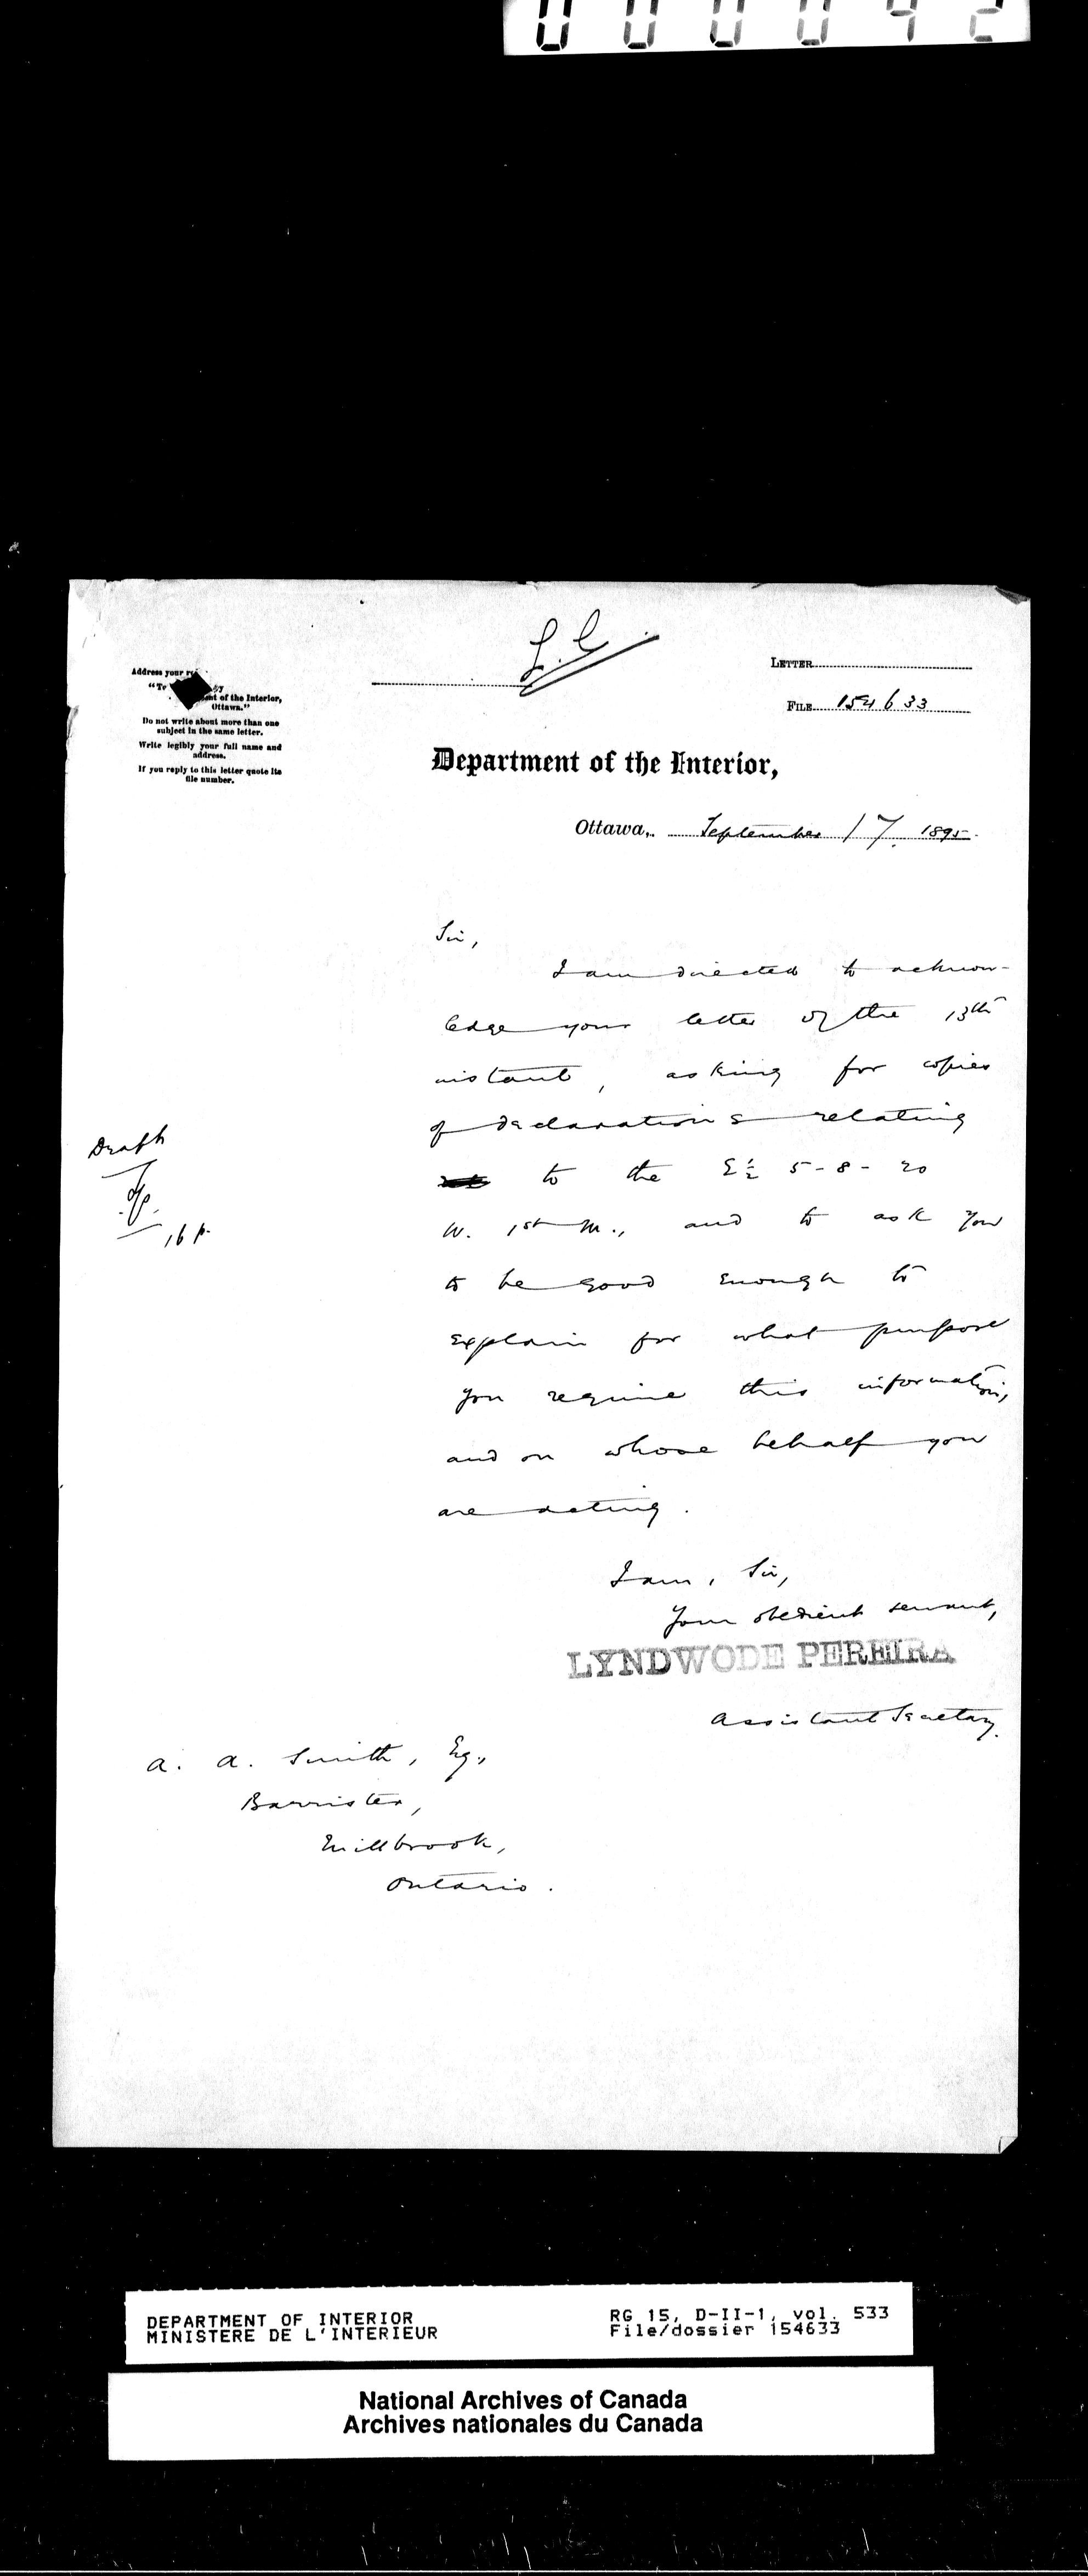 000042
L.G.
LETTER
FILE 154633
Address your
"To
of the Interior,
Ottawa."
Do not write about more than one
subject in the same letter.
Write legibly your full name and
address.
If you reply to this letter quote its
file number.
Department of the Interior,
Ottawa, September 17, 1895.
Sir,
I am directed to acknow-
ledge your letter of the 13th
instant, asking for copies
of declarations relating
to the E½ 5-8-20
W. 1st M., and to ask you
to be good enough to
explain for what purpose
you require this information,
and on whose behalf you
are acting.
Draft
16
I am, Sir,
Your obedient servant,
LYNDWODE PEREIRA
Assistant Secretary.
A. A. Smith, Esq.,
Barrister,
Millbrook,
Ontario.
DEPARTMENT OF INTERIOR
MINISTERE DE L'INTERIEUR
RG 15, D-II-1, vol. 533
File/dossier 154633
National Archives of Canada
Archives nationales du Canada